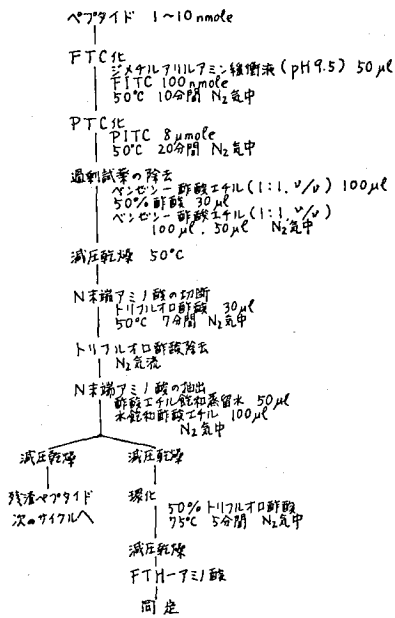 ペプタイド 1~10 nmole
FTC化
ジメチルアリルアミン緩衝液(pH9.5) 50μl
FITC 100nmole
50℃ 10分間 N₂気中
PTC化
PITC 8μmole
50℃ 20分間 N₂気中
過剰試薬の除去
ベンゼン-酢酸エチル(1:1, v/v) 100μl
50%酢酸 30μl
ベンゼン-酢酸エチル(1:1, v/v)
100μl, 50μl N₂気中
減圧乾燥 50℃
N末端アミノ酸の切断
トリフルオロ酢酸 30μl
50℃ 7分間 N₂気中
トリフルオロ酢酸除去
N₂気流
N末端アミノ酸の抽出
酢酸エチル飽和蒸留水 50μl
水飽和酢酸エチル 100μl
N₂気中
減圧乾燥 減圧乾燥
残渣ペプタイド 環化
次のサイクルへ 50%トリフルオロ酢酸
75℃ 5分間 N₂気中
減圧乾燥
FTH-アミノ酸
同定